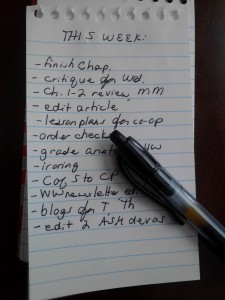 THIS WEEK:
- finish Chap.
- critique for Wd.
- Ch. 1-2 review MM
- edit article
- lesson plans for co-op
- order checks
- grade HW
- ironing
- C of S to CP
- WW newsletter
- blogs for T Th
- edit 2 ASM devos.